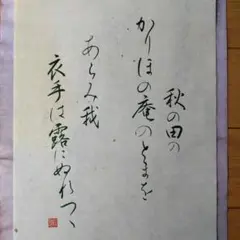 秋の田の
かりほの庵のとまを
あらみ我
衣手は露にぬれつゝ